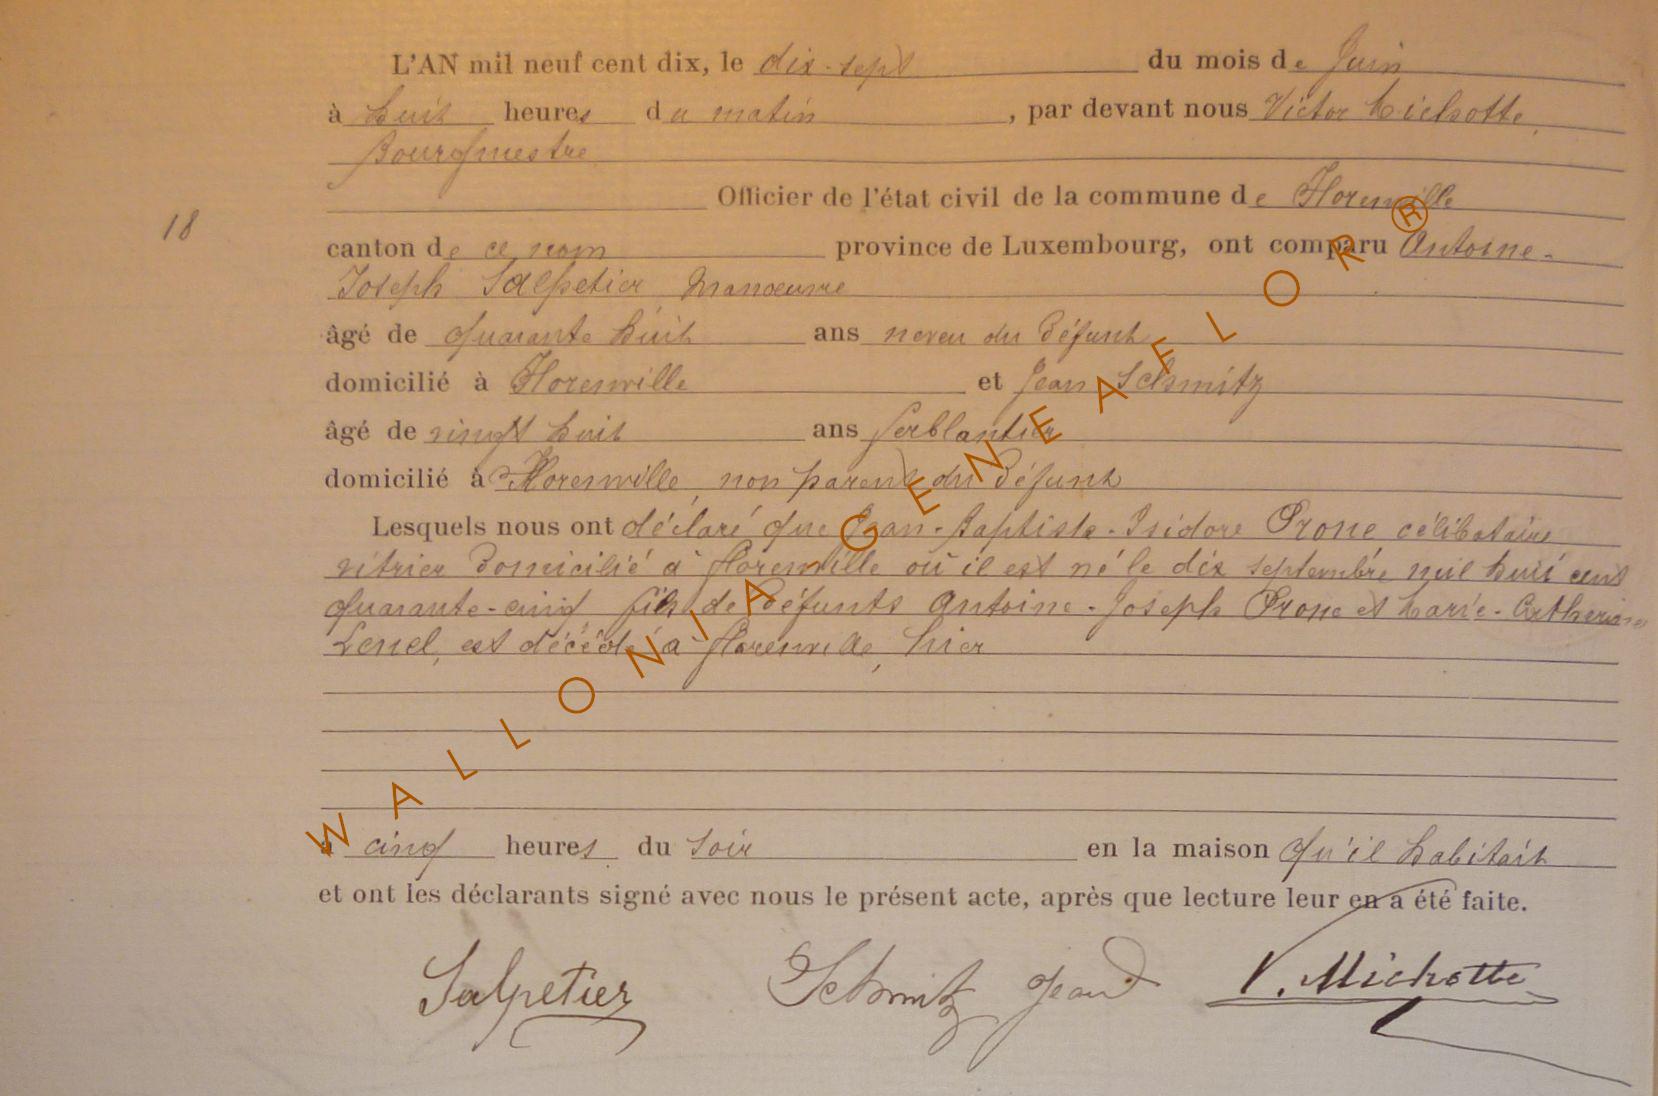 L'AN mil neuf cent dix, le dix-sept du mois de Juin
à huit heures du matin, par devant nous Victor Michotte,
Bourgmestre
Officier de l'état civil de la commune de Florenville
18
canton de ce nom province de Luxembourg, ont comparu Antoine-
Joseph Salpetier, Manoeuvre
âgé de quarante huit ans neveu du défunt
domicilié à Florenville et Jean Schmitz
âgé de vingt huit ans ferblantier
domicilié à Florenville, non parent du défunt
Lesquels nous ont déclaré que Jean-Baptiste-Isidore Prone célibataire
vitrier domicilié à Florenville où il est né le dix septembre mil huit cent
quarante-cinq fils de défunts Antoine-Joseph Prone et Marie-Catherine
est décédé à Florenville, hier
à cinq heures du soir en la maison qu'il habitait
et ont les déclarants signé avec nous le présent acte, après que lecture leur en a été faite.
Salpetier Schmitz Jean V. Michotte
WALLONIA GENEAFLOR®